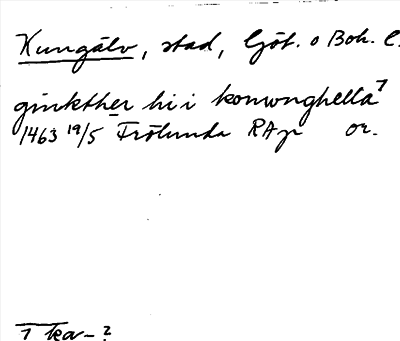 Kungälv, stad, Göt. o Boh. l.
ginkther hi i konwnghella 7
1463 19/5 Frölunda RAp or.
7 ka–?